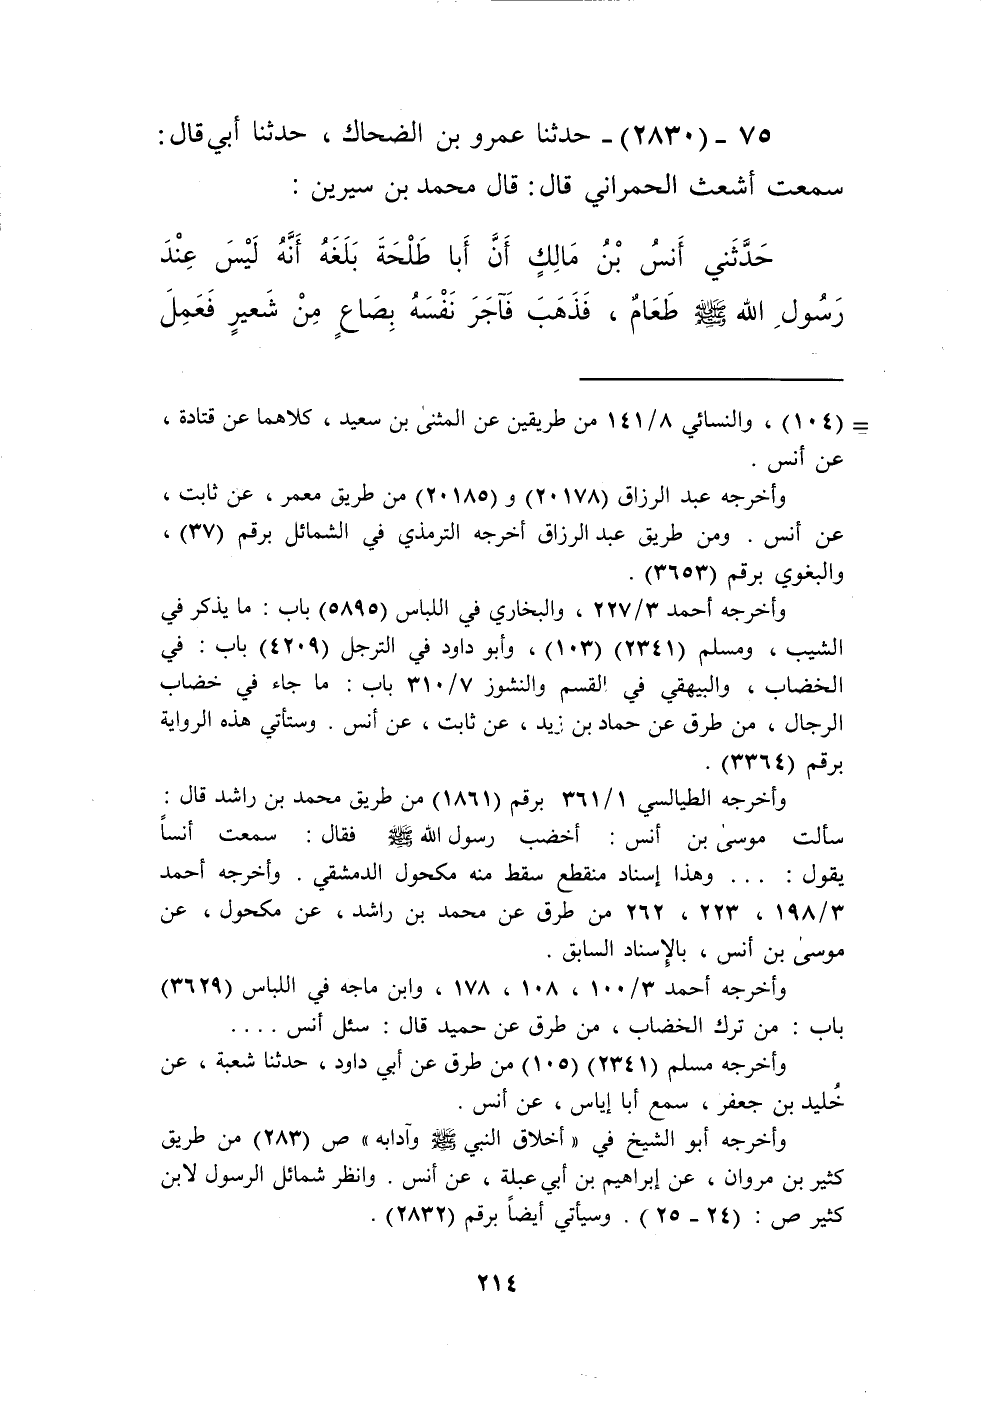 ٧٥ - (٢٨٣٠) - حدثنا عمرو بن الضحاك ، حدثنا أبي قال :
سمعت أشعث الحمراني قال : قال محمد بن سيرين :
حَدَّثَني أَنسُ بْنُ مَالِكٍ أَنَّ أَبا طَلْحَةَ بَلَغَهُ أَنَّهُ لَيْسَ عِنْدَ
رَسُولِ الله ﷺ طَعَامٌ ، فَذَهَبَ فَآجَرَ نَفْسَهُ بِصَاعٍ مِنْ شَعيرٍ فَعَمِلَ
= (١٠٤) ، والنسائي ١٤١/٨ من طريقين عن المثنىٰ بن سعيد ، كلاهما عن قتادة ،
عن أنس .
وأخرجه عبد الرزاق (٢٠١٧٨) و (٢٠١٨٥) من طريق معمر ، عن ثابت ،
عن أنس . ومن طريق عبد الرزاق أخرجه الترمذي في الشمائل برقم (٣٧) ،
والبغوي برقم (٣٦٥٣) .
وأخرجه أحمد ٢٢٧/٣ ، والبخاري في اللباس (٥٨٩٥) باب : ما يذكر في
الشيب ، ومسلم (٢٣٤١) (١٠٣) ، وأبو داود في الترجل (٤٢٠٩) باب : في
الخضاب ، والبيهقي في القسم والنشوز ٣١٠/٧ باب : ما جاء في خضاب
الرجال ، من طرق عن حماد بن زيد ، عن ثابت ، عن أنس . وستأتي هذه الرواية
برقم (٣٣٦٤) .
وأخرجه الطيالسي ٣٦١/١ برقم (١٨٦١) من طريق محمد بن راشد قال :
سألت موسىٰ بن أنس : أخضب رسول الله ﷺ فقال : سمعت أنساً
يقول : ... وهذا إسناد منقطع سقط منه مكحول الدمشقي . وأخرجه أحمد
١٩٨/٣ ، ٢٢٣ ، ٢٦٢ من طرق عن محمد بن راشد ، عن مكحول ، عن
موسىٰ بن أنس ، بالإسناد السابق .
وأخرجه أحمد ١٠٠/٣ ، ١٠٨ ، ١٧٨ ، وابن ماجه في اللباس (٣٦٢٩)
باب : من ترك الخضاب ، من طرق عن حميد قال : سئل أنس ....
وأخرجه مسلم (٢٣٤١) (١٠٥) من طرق عن أبي داود ، حدثنا شعبة ، عن
خُليد بن جعفر ، سمع أبا إياس ، عن أنس .
وأخرجه أبو الشيخ في « أخلاق النبي ﷺ وآدابه » ص (٢٨٣) من طريق
كثير بن مروان ، عن إبراهيم بن أبي عبلة ، عن أنس . وانظر شمائل الرسول لابن
كثير ص : (٢٤ - ٢٥ ) . وسيأتي أيضاً برقم (٢٨٣٢) .
٢١٤